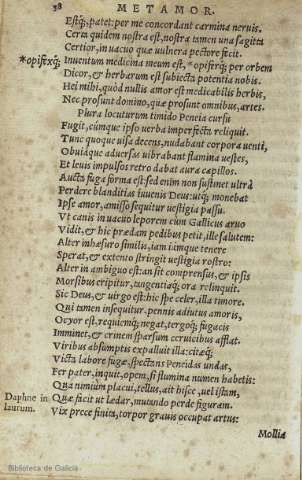 38 METAMOR.
Estq́;, patet: per me concordant carmina neruis.
Certa quidem nostra est, nostra tamen una sagitta
Certior, in uacuo quæ uulnera pectore fecit.
*opifexq́; Inuentum medicina meum est, *opiferq́; per orbem
Dicor, & herbarum est subiecta potentia nobis.
Hei mihi, quòd nullis amor est medicabilis herbis,
Nec prosunt domino, quæ prosunt omnibus, artes.
Plura locuturum timido Peneia cursu
Fugit, cúmque ipso uerba imperfecta reliquit.
Tunc quoque uisa decens, nudabant corpora uenti,
Obuiáque aduersas uibrabant flamina uestes,
Et leuis impulsos retro dabat aura capillos.
Aucta fuga forma est: sed enim non sustinet ultrà
Perdere blanditias iuuenis Deus: utq́; monebat
Ipse amor, amisso sequitur uestigia passu.
Vt canis in uacuo leporem cùm Gallicus aruo
Vidit, & hic prædam pedibus petit, ille salutem:
Alter inhæsuro similis, iam iámque tenere
Sperat, & extento stringit uestigia rostro:
Alter in ambiguo est: an sit comprensus, & ipsis
Morsibus eripitur, tangentiáq; ora relinquit.
Sic Deus, & uirgo est: hic spe celer, illa timore.
Qui tamen insequitur, pennis adiutus amoris,
Ocyor est, requiemq́; negat, tergoq́; fugacis
Imminet, & crinem sparsum ceruicibus afflat.
Viribus absumptis expalluit illa: citæq́;
Victa labore fugæ, spectans Peneidas undas,
Fer pater, inquit, opem, si flumina numen habetis:
Qua nimium placui, tellus, ait hisce, uel istam,
Daphne in laurum. Quæ facit ut lædar, mutando perde figuram.
Vix prece finita, torpor grauis occupat artus:
Mollia
Biblioteca de Galicia